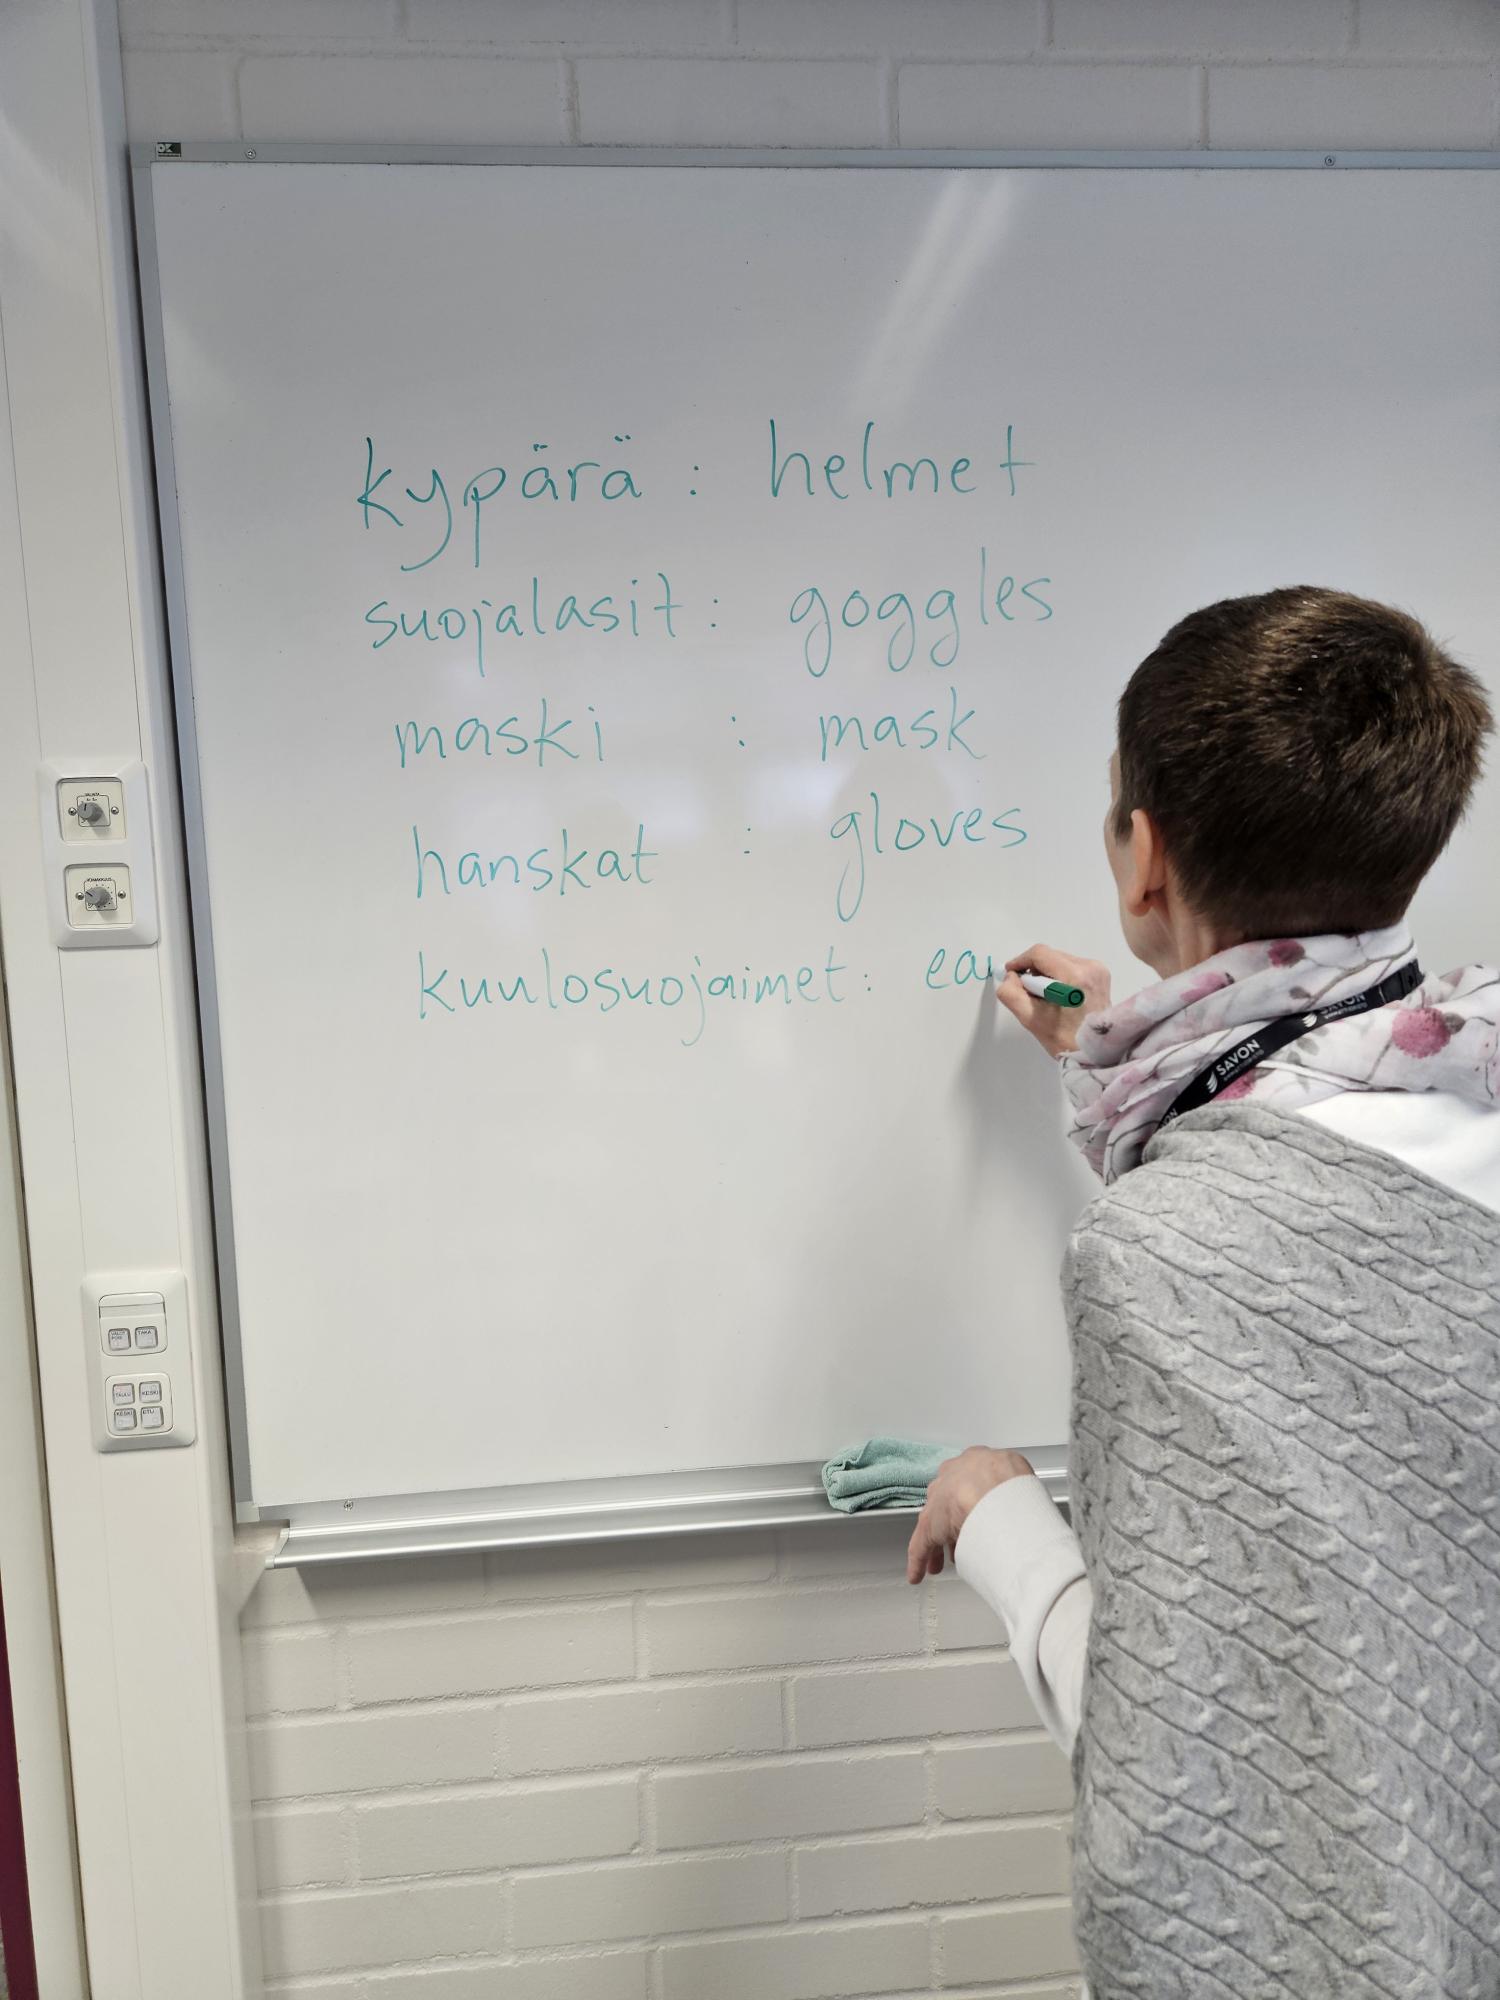 kypärä : helmet
suojalasit : goggles
maski : mask
hanskat : gloves
kuulosuojaimet :
SAVON
TAKA
TAULU KESKI
KESKI ETU